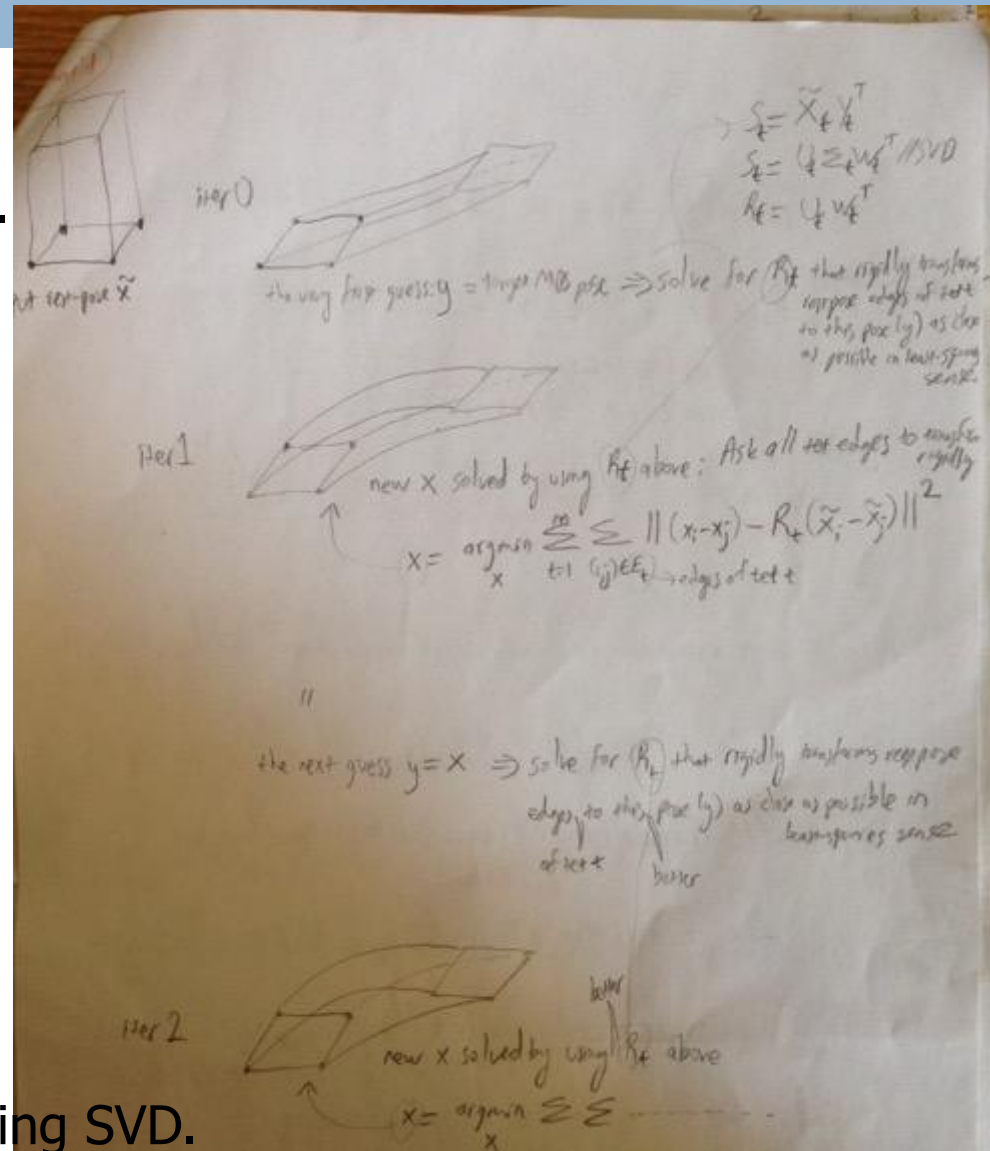 S_t = X̃_t Y_t^T
S_t = U_t Σ_t W_t^T //SVD
R_t = U_t W_t^T
iter 0
rest-pose x̃
the very first guess: y = pose => solve for R_t that rigidly transforms
restpose edges of tet t
to this pose (y) as close
as possible in least-squares
sense.
iter 1
new x solved by using R_t above: Ask all tet edges to transform
rigidly
x = argmin_x Σ_{t=1}^m Σ_{(i,j)∈E_t} ||(x_i-x_j) - R_t(x̃_i-x̃_j)||^2
→ edges of tet t
"
the next guess y = x => solve for R_t that rigidly transforms restpose
edges to this pose (y) as close as possible in
least-squares sense
of tet t
better
better
iter 2
new x solved by using R_t above
x = argmin_x Σ Σ ----------
ing SVD.